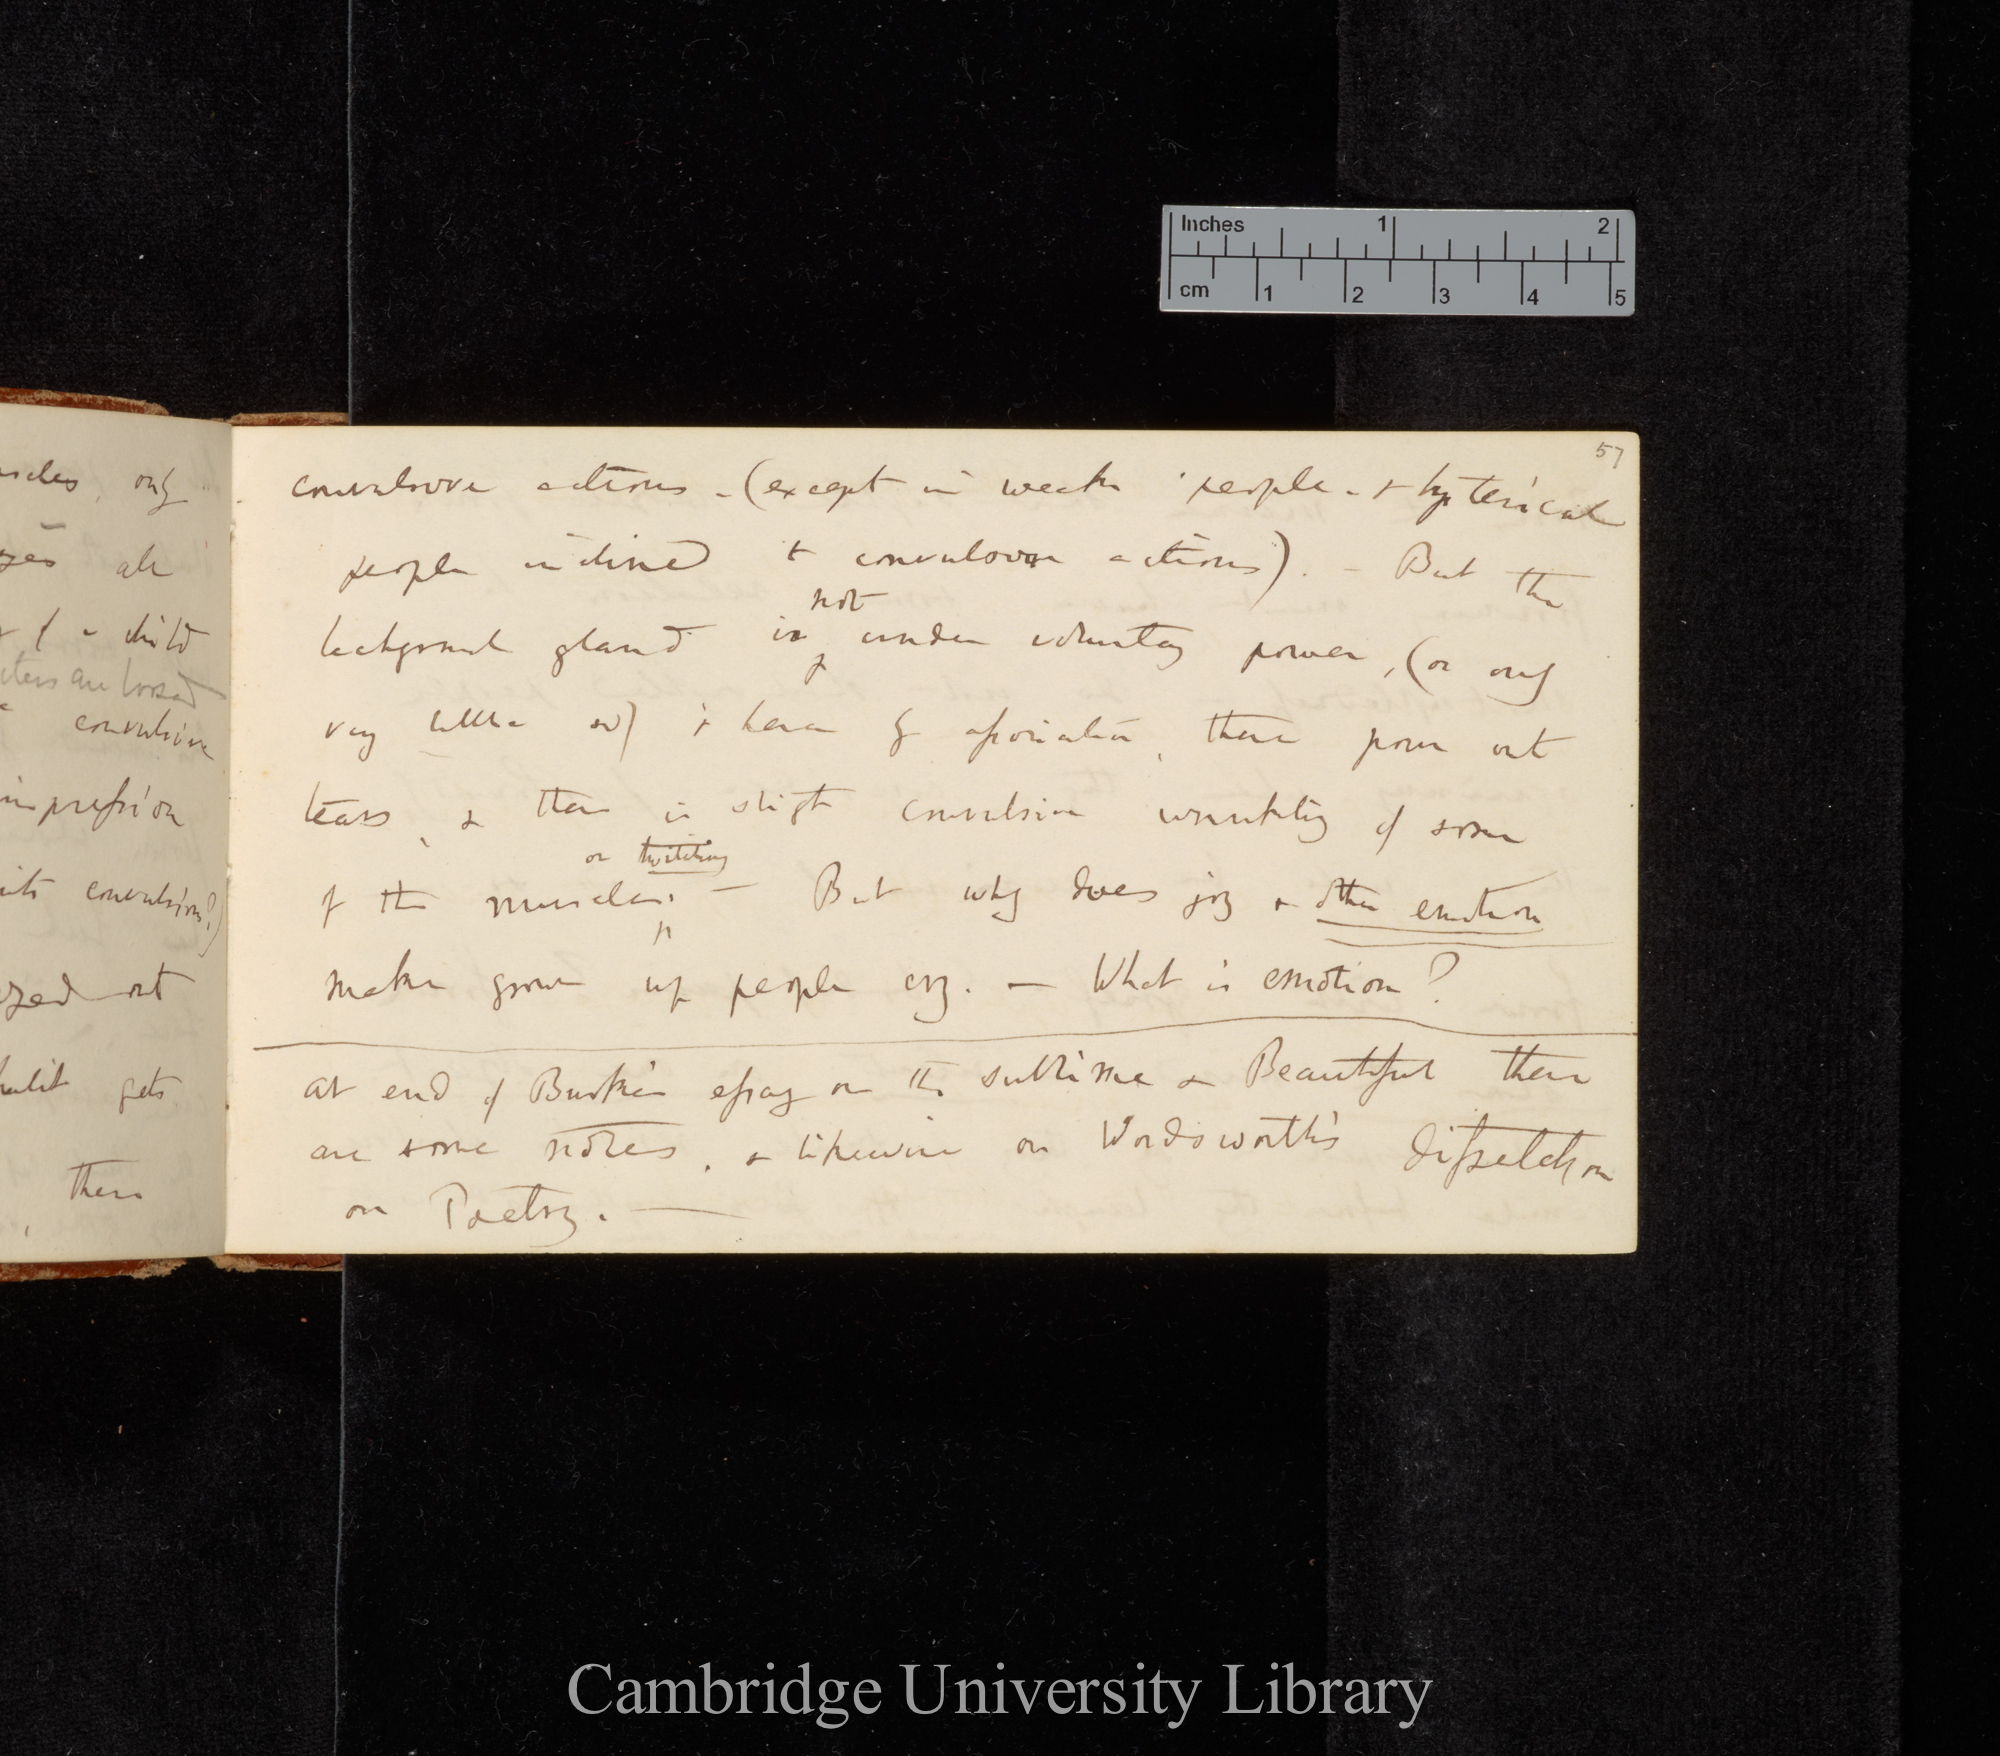 Inches 1 2
cm 1 2 3 4 5
57
convulsive actions - (except in weak people - & hysterical
people inclined to convulsive actions). - But the
not
gland is under voluntary power, (or only
very little so) & hence by association, there pour out
tears, & there is slight convulsive wrinkling of some
or twitching
of the muscles. — But why does joy & other emotion
make grown up people cry. — What is emotion?
at end of Burke's essay on the sublime & Beautiful there
are some notes, & likewise on Wordsworth's
on Poetry. —
only
all
of a child
convulsive
impression
convulsions?)
out
gets
there
Cambridge University Library